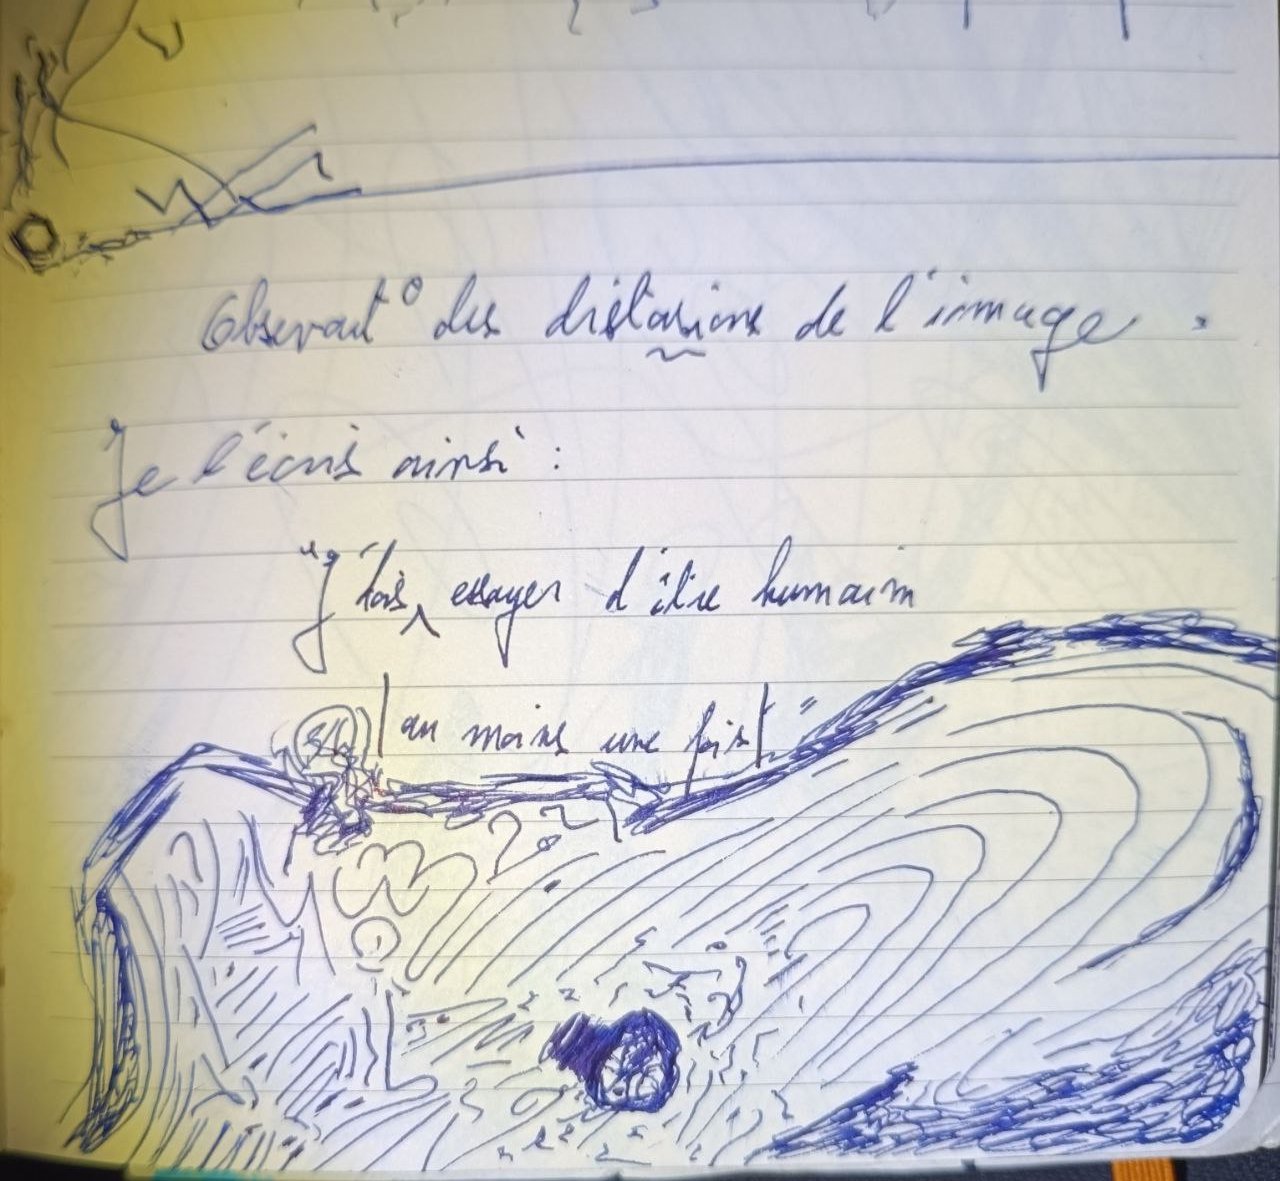 Observat° des distorsions de l'image.
Je l'écris ainsi :
"J'dois, essayer d'être humain
au moins une fois"